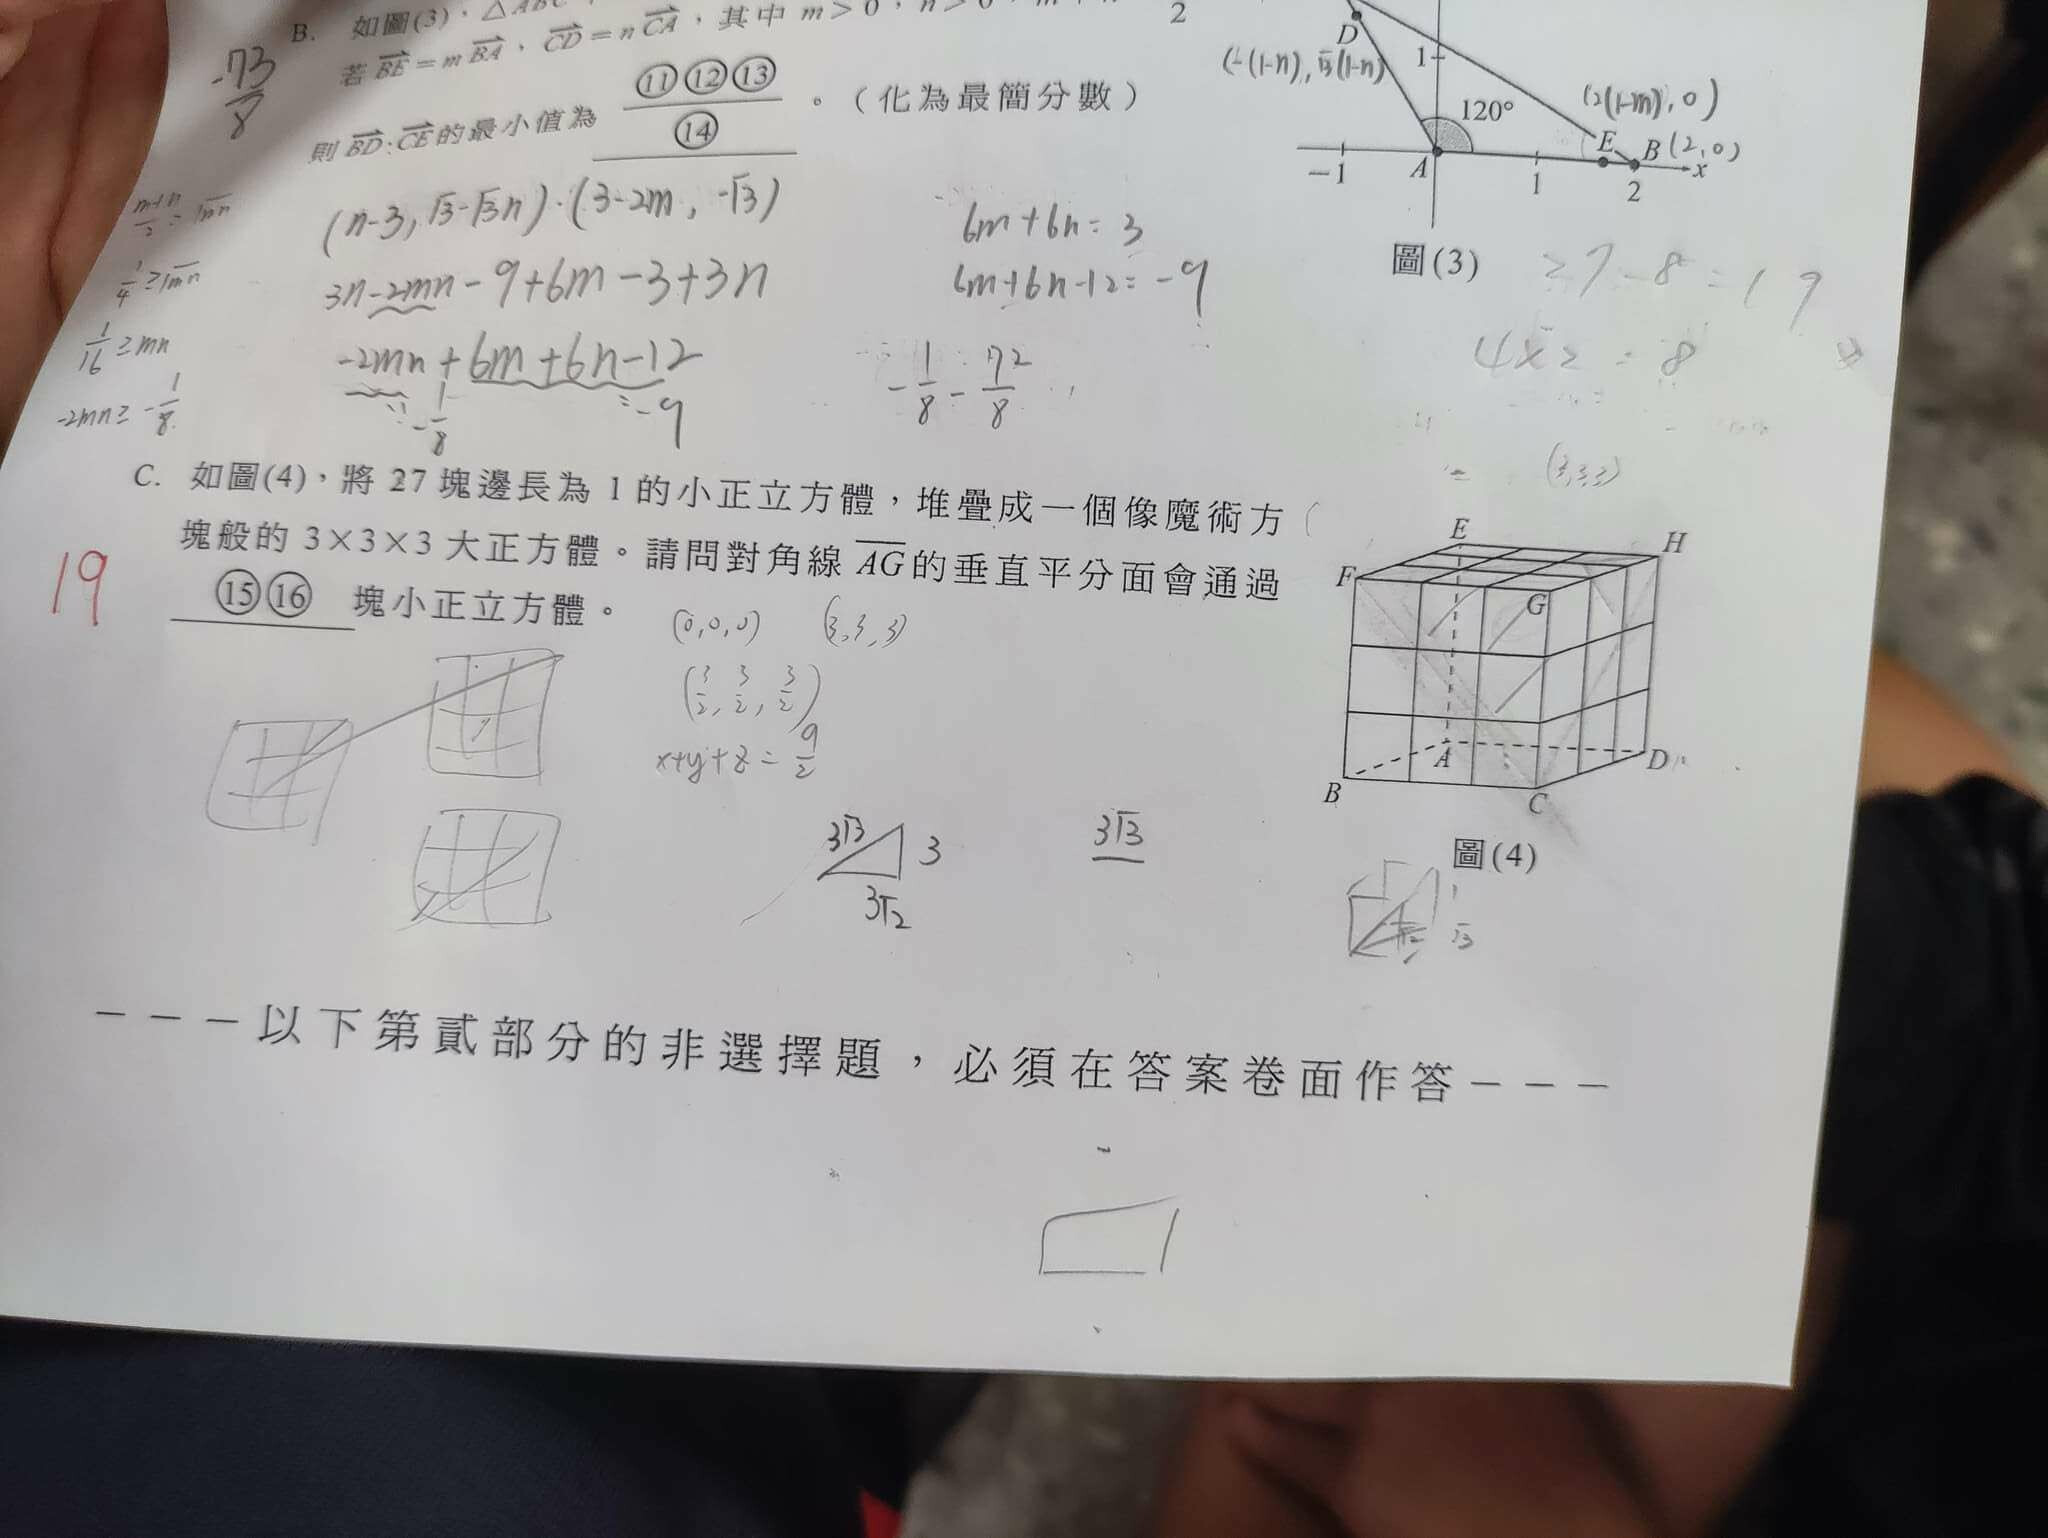 B. 如圖(3),△ABC
若 BE = m BA,CD = n CA,其中 m > 0,n > 0,
則 BD · CE 的最小值為 ⑪⑫⑬ / ⑭ 。(化為最簡分數)
-73/8
(n-3, √3-√3n)·(3-2m, -√3)
3n-2mn-9+6m-3+3n
-2mn+6m+6n-12
-1/8
-9
m+n/2 ≥ √mn
1/4 ≥ √mn
1/16 ≥ mn
-2mn ≥ -1/8
6m+6n=3
6m+6n-12=-9
-1/8 - 72/8
D
(-(1-n), √3(1-n))
2
1
120°
(2(1-m), 0)
-1
A
1
E
B (2,0)
2
x
圖(3)
27-8=19
4×2=8
C. 如圖(4),將 27 塊邊長為 1 的小正立方體,堆疊成一個像魔術方
塊般的 3×3×3 大正方體。請問對角線 AG 的垂直平分面會通過
⑮⑯ 塊小正立方體。
19
(0,0,0) (3,3,3)
(3/2, 3/2, 3/2)
x+y+z=9/2
3√3
3
3√2
3√3
(3,3,3)
E
H
F
G
A
D
B
C
圖(4)
1
√2
√3
---以下第貳部分的非選擇題,必須在答案卷面作答---